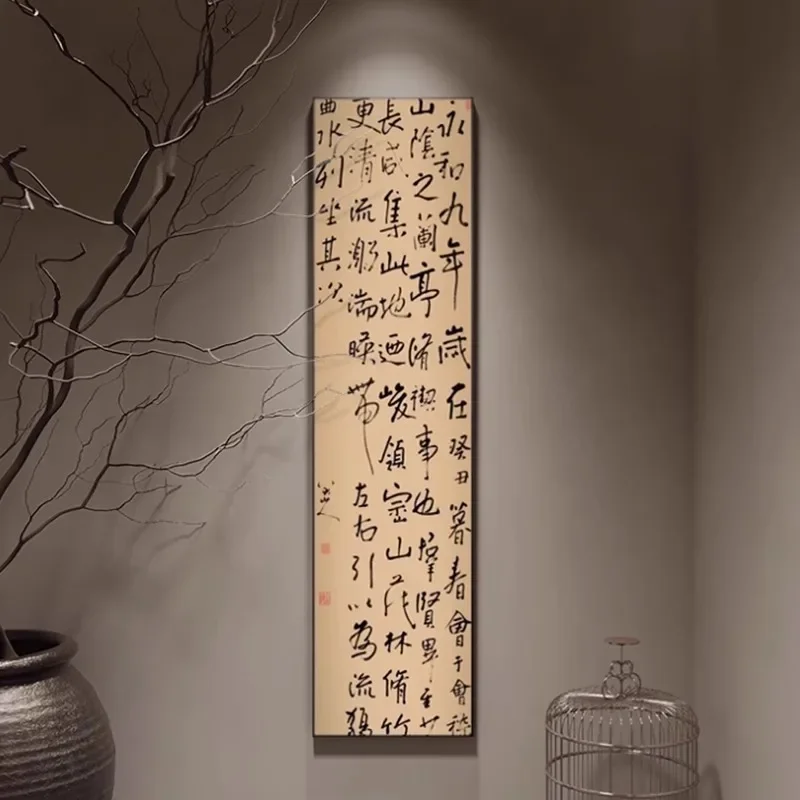 永和九年歲在癸丑暮春會于會稽
山陰之蘭亭脩禊事也羣賢畢至少
長咸集此地迺峻領崇山茂林脩竹
更清流激湍暎帶左右引以為流觴
曲水列坐其次
八大山人